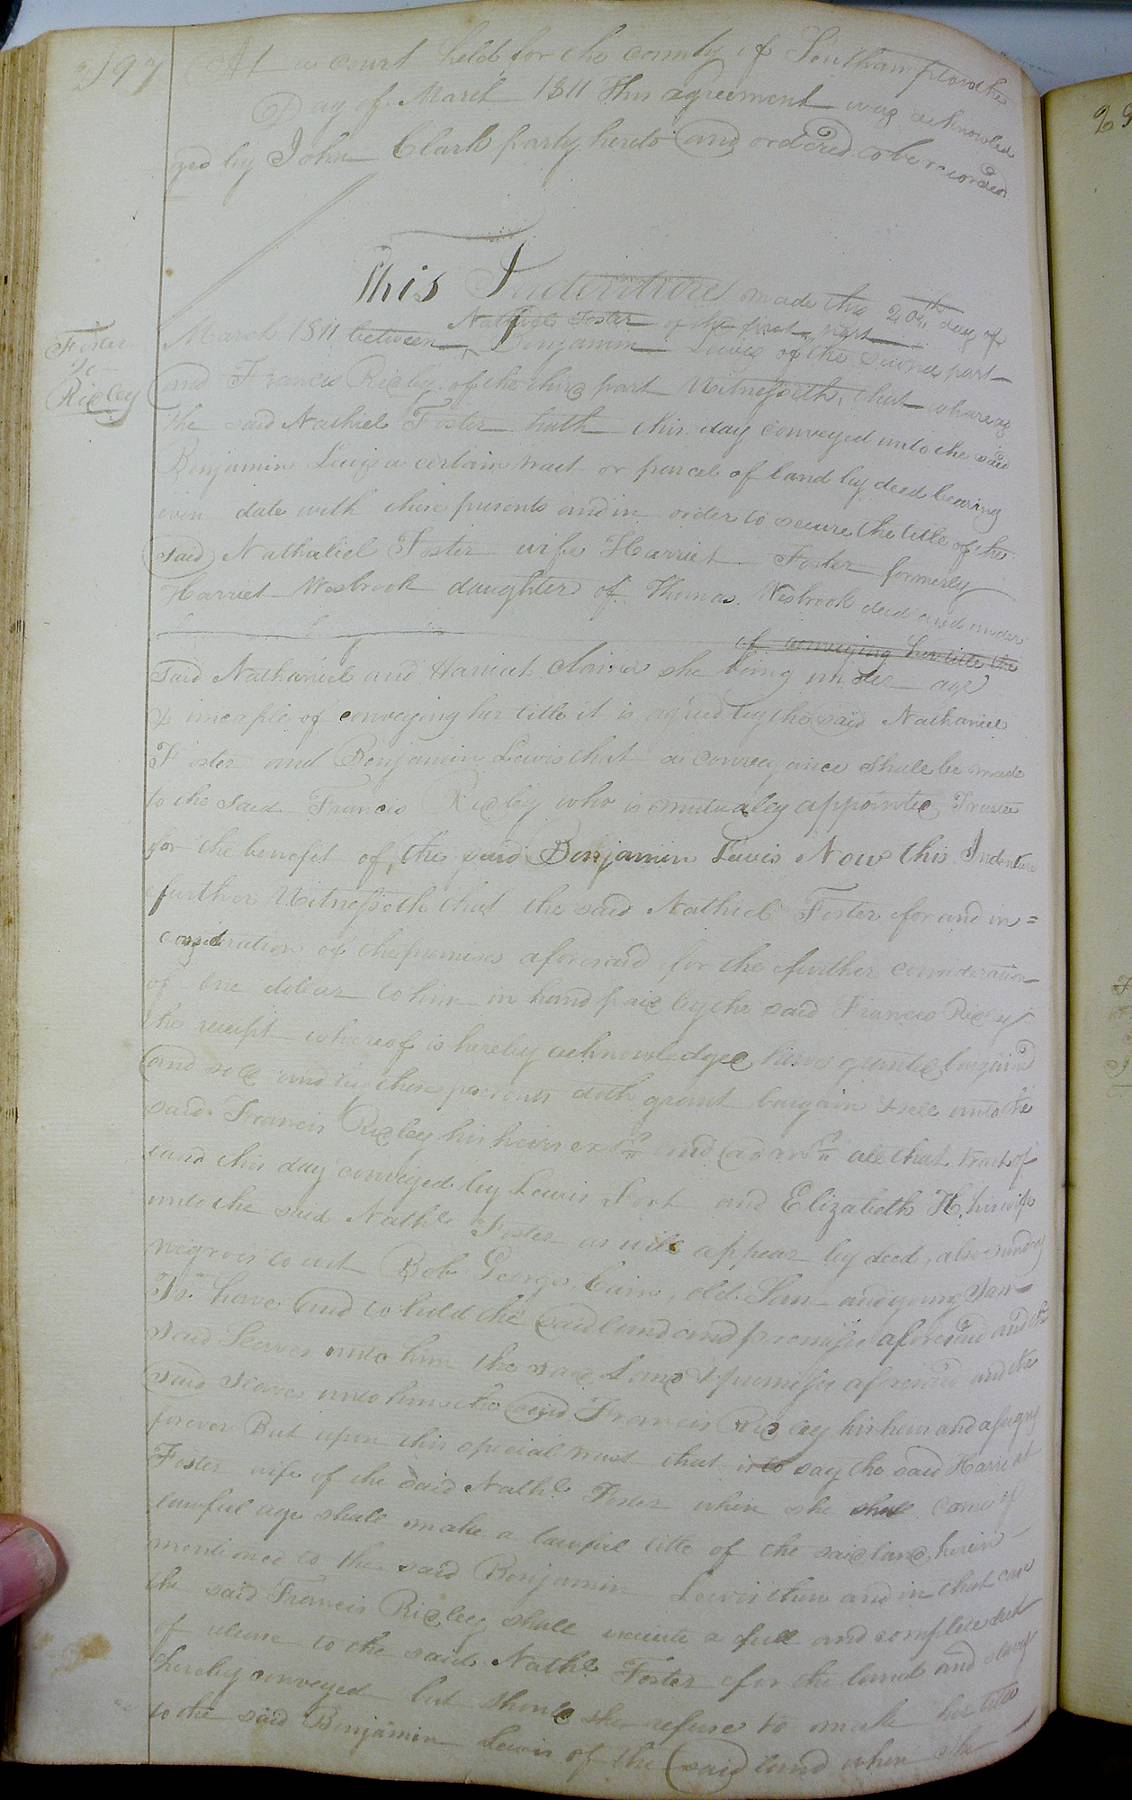 297 At a court held for the county of Southampton the
Day of March 1811 This agreement was acknowled
ged by John Clark party hereto and ordered to be recorded
This Indenture made the 20th day of
Foster
to
Ridley
Nathiel Foster of the first part
March 1811 between Benjamin Lewis of the second part
and Francis Ridley of the third part Witnesseth, that whereas
the said Nathiel Foster hath this day conveyed unto the said
Benjamin Lewis a certain tract or parcel of land by deed bearing
even date with these presents and in order to secure the title of the
said Nathaliel Foster wife Harriet Foster formerly
Harriet Wesbrook daughter of Thomas Wesbrook decd and under
of conveying her title the
said Nathaniel and Harriet claims she being under age
& incaple of conveying her title it is agreed by the said Nathaniel
Foster and Benjamin Lewis that a conveyance shall be made
to the said Francis Ridley who is mutualey appointed Trustee
for the benefit of the said Benjamin Lewis Now this Indenture
further Witnesseth that the said Nathiel Foster for and in=
consideration of the premises aforesaid for the further consideration
of one dollar to him in hand paid by the said Francis Ridley
the receipt whereof is hereby acknowledged have granted bargained
and sold and by these presents doth grant bargain & sell unto the
said Francis Ridley his heirs exrs and admrs all that tract of
land this day conveyed by Lewis Fort and Elizabeth H. his wife
unto the said Nathl Foster as will appear by deed, also sundry
negroes to wit Bob George, Cain, old Sam and young Sam
To have and to hold the said land and premises aforesaid and the
said Slaves unto him the said Land & premises aforesaid and the
said slaves unto him the said Francis Ridley his heirs and assigns
forever But upon this special trust that is to say the said Harriet
Foster wife of the said Nathl Foster when she shall come of
lawful age shall make a lawful title of the said land herein
mentioned to the said Benjamin Lewis then and in that case
the said Francis Ridley shall execute a full and complete deed
of release to the said Nathl Foster for the land and slaves
hereby conveyed but should she refuse to make her title
to the said Benjamin Lewis of the said land when she